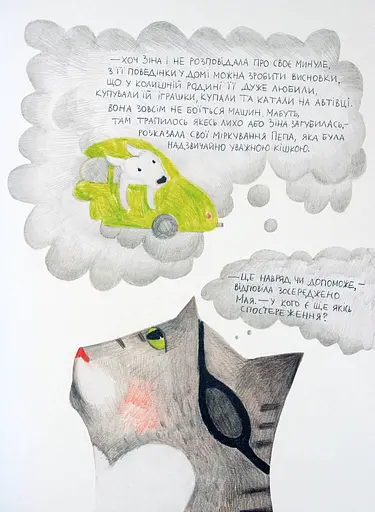 —ХОЧ ЗІНА І НЕ РОЗПОВІДАЛА ПРО СВОЄ МИНУЛЕ,
З ЇЇ ПОВЕДІНКИ У ДОМІ МОЖНА ЗРОБИТИ ВИСНОВКИ,
ЩО У КОЛИШНІЙ РОДИНІ ЇЇ ДУЖЕ ЛЮБИЛИ,
КУПУВАЛИ ЇЙ ІГРАШКИ, КУПАЛИ ТА КАТАЛИ НА АВТІВЦІ.
ВОНА ЗОВСІМ НЕ БОЇТЬСЯ МАШИН. МАБУТЬ,
ТАМ ТРАПИЛОСЬ ЯКЕСЬ ЛИХО АБО ЗІНА ЗАГУБИЛАСЬ,—
РОЗКАЗАЛА СВОЇ МІРКУВАННЯ ПЕПА, ЯКА БУЛА
НАДЗВИЧАЙНО УВАЖНОЮ КІШКОЮ.
—ЦЕ НАВРЯД ЧИ ДОПОМОЖЕ,—
ВІДПОВІЛА ЗОСЕРЕДЖЕНО
МАЯ.—У КОГО Є ЩЕ ЯКІСЬ
СПОСТЕРЕЖЕННЯ?